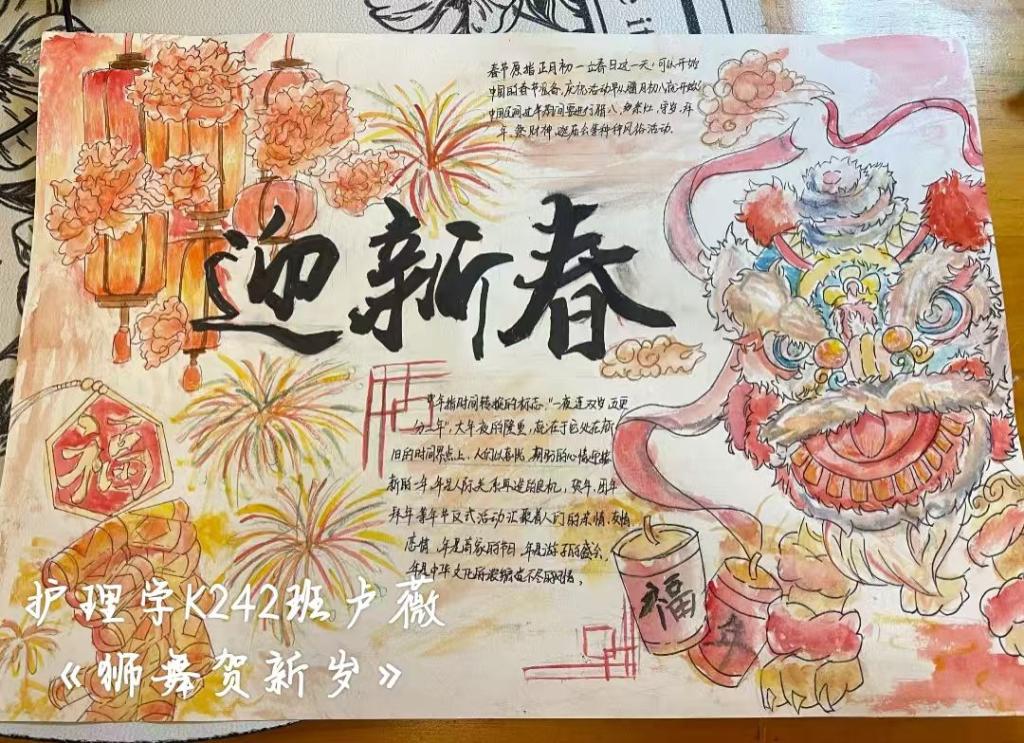 春节是指正月初一立春日这一天，可以开始
中国的春节准备，庆祝活动
中国民间过年
年、祭财神、逛庙会等种种风俗活动.
迎新春
贺年指时间转换的标志，“一夜连双岁，五更
分二年”，大年夜的隆重，就在于它处在新
旧的时间界点上，人们以喜悦、期盼的心情迎接
新的一年.年是人际关系再造的良机，贺年、团年
拜年等年节仪式活动汇聚着人们的亲情、友情
恋情，年是阖家的节日，年是游子的盛会，
年是中华文化
福
福
年
护理学K242班卢薇
《狮舞贺新岁》